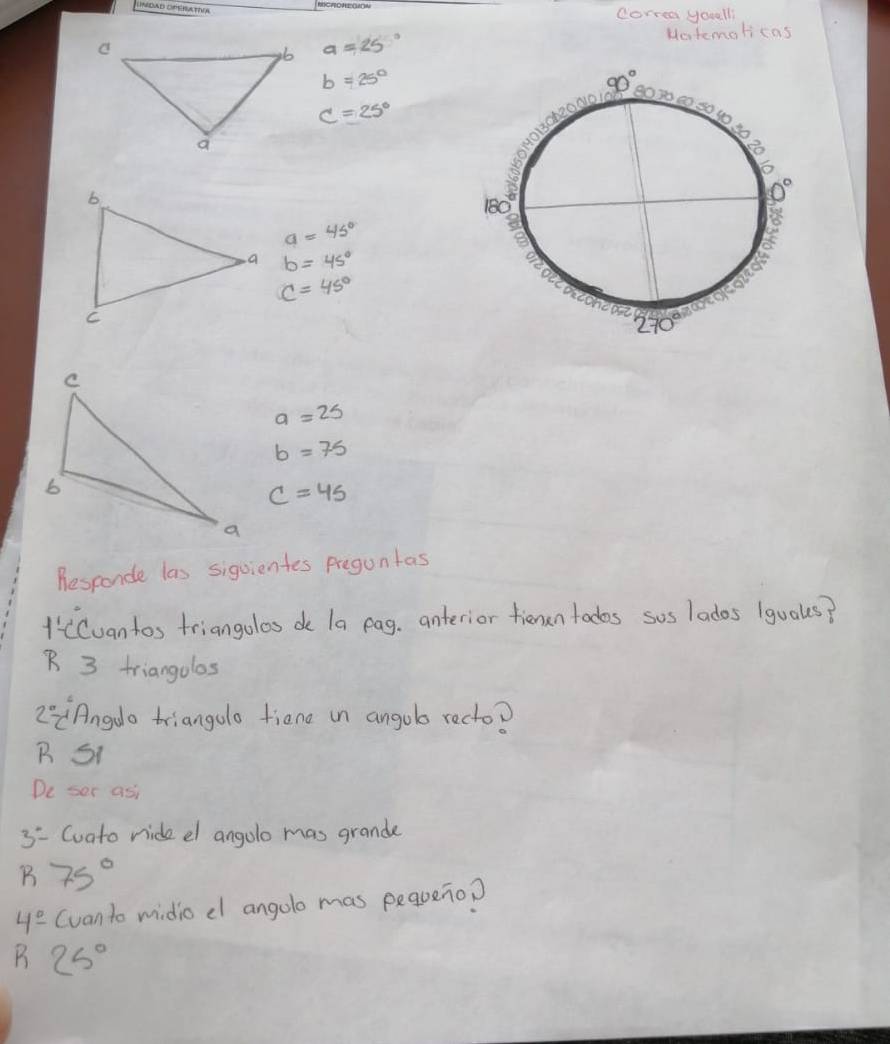 UNIDAD OPERATIVA
MICROREGION
Correa Yoselli
Matematicas
c b a = 25°
b = 25°
c = 25°
a
90°
80 70 60 50 40 30 20 10
0°
180°
270°
b
a = 45°
a b = 45°
c = 45°
c
c
a = 25
b = 75
b c = 45
a
Responde las siguientes preguntas
1°-¿Cuantos triangulos de la pag. anterior tienen todos sus lados iguales?
R 3 triangulos
2°-¿Angulo triangulo tiene un angulo recto?
R SI
De ser asi
3°- Cuato mide el angulo mas grande
R 75°
4° Cuanto midio el angulo mas pequeño?
R 25°